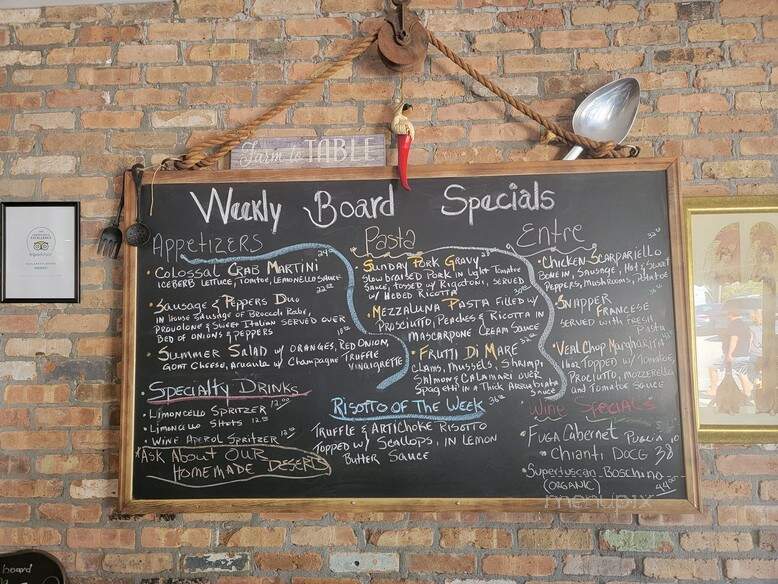 Farm to TABLE
Weekly Board Specials
Appetizers
24.00
Colossal Crab Martini
Iceberg Lettuce, Tomatoe, Lemonello Sauce
22.00
Sausage & Peppers Duo
In House Sausage of Broccoli Rabe,
Provolone & Sweet Italian Served Over
Bed of Onions & Peppers
18.00
Summer Salad w/ Oranges, Red Onion,
Goat Cheese, Arugula w/ Champagne Truffle
Vinaigrette
Specialty Drinks
Limoncello Spritzer 12.00
Limoncello Shots 12.00
Wine Aperol Spritzer
Ask About Our
Homemade Desserts
Pasta
Sunday Pork Gravy
Slow Braised Pork in Light Tomatoe
Sauce, Tossed w/ Rigatoni, Served
w/ Herbed Ricotta
Mezzaluna Pasta Filled w/
Prosciutto, Peaches & Ricotta in
Mascarpone Cream Sauce
32.00
Frutti Di Mare
Clams, Mussels, Shrimp,
Salmon & Calamari over
Spagetti in a Thick Arrabiata
Sauce
Risotto of The Week
36.00
Truffle & Artichoke Risotto
Topped w/ Scallops, in Lemon
Butter Sauce
Entre
Chicken Scarpariello
Bone in, Sausage, Hot & Sweet
Peppers, Mushrooms, Potatoe
Snapper
Francese
Served with Fresh
Pasta
Veal Chop Margharita
Topped w/ Tomatoe,
Prociutto, Mozzerella
and Tomatoe Sauce
Wine Specials
Fuga Cabernet Puglia
Chianti DOCG 38
Supertuscan Boschino
(Organic) 44.00
menupix
board